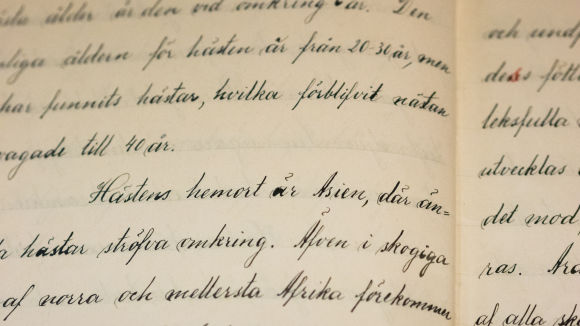 ålder är den vid omkring år. Den
åldern för hästen är från 20-30 år, men
har funnits hästar, hvilka förblifvit nästan
till 40 år.
Hästens hemort är Asien, där än=
hästar ströfva omkring. Äfven i skogiga
af norra och mellersta Afrika förekommer
och
dess
utvecklas
det mod,
ras.
af alla